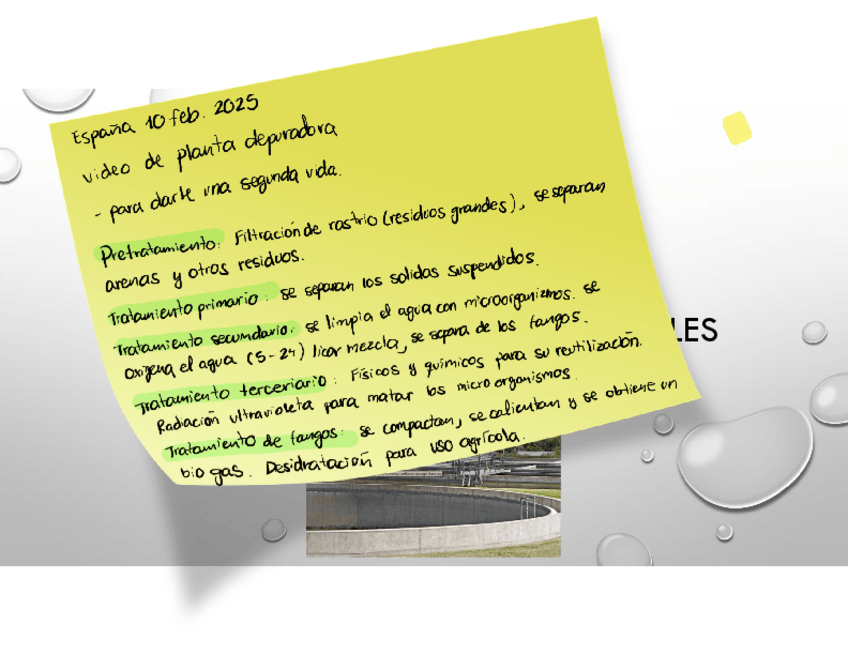 España 10 feb. 2025
video de planta depuradora
- para darle una segunda vida.
Pretratamiento: Filtración de rastrio (residuos grandes), se separan
arenas y otros residuos.
Tratamiento primario: se separan los solidos suspendidos.
Tratamiento secundario: se limpia el agua con microorganizmos. se
oxigena el agua (5-24) licor mezcla, se separa de los fangos.
Tratamiento terceriario: Físicos y químicos para su reutilización.
Radiación ultravioleta para matar los micro organismos.
Tratamiento de fangos: se compactan, se calientan y se obtiene un
bio gas. Desidratación para uso agrícola.
LES